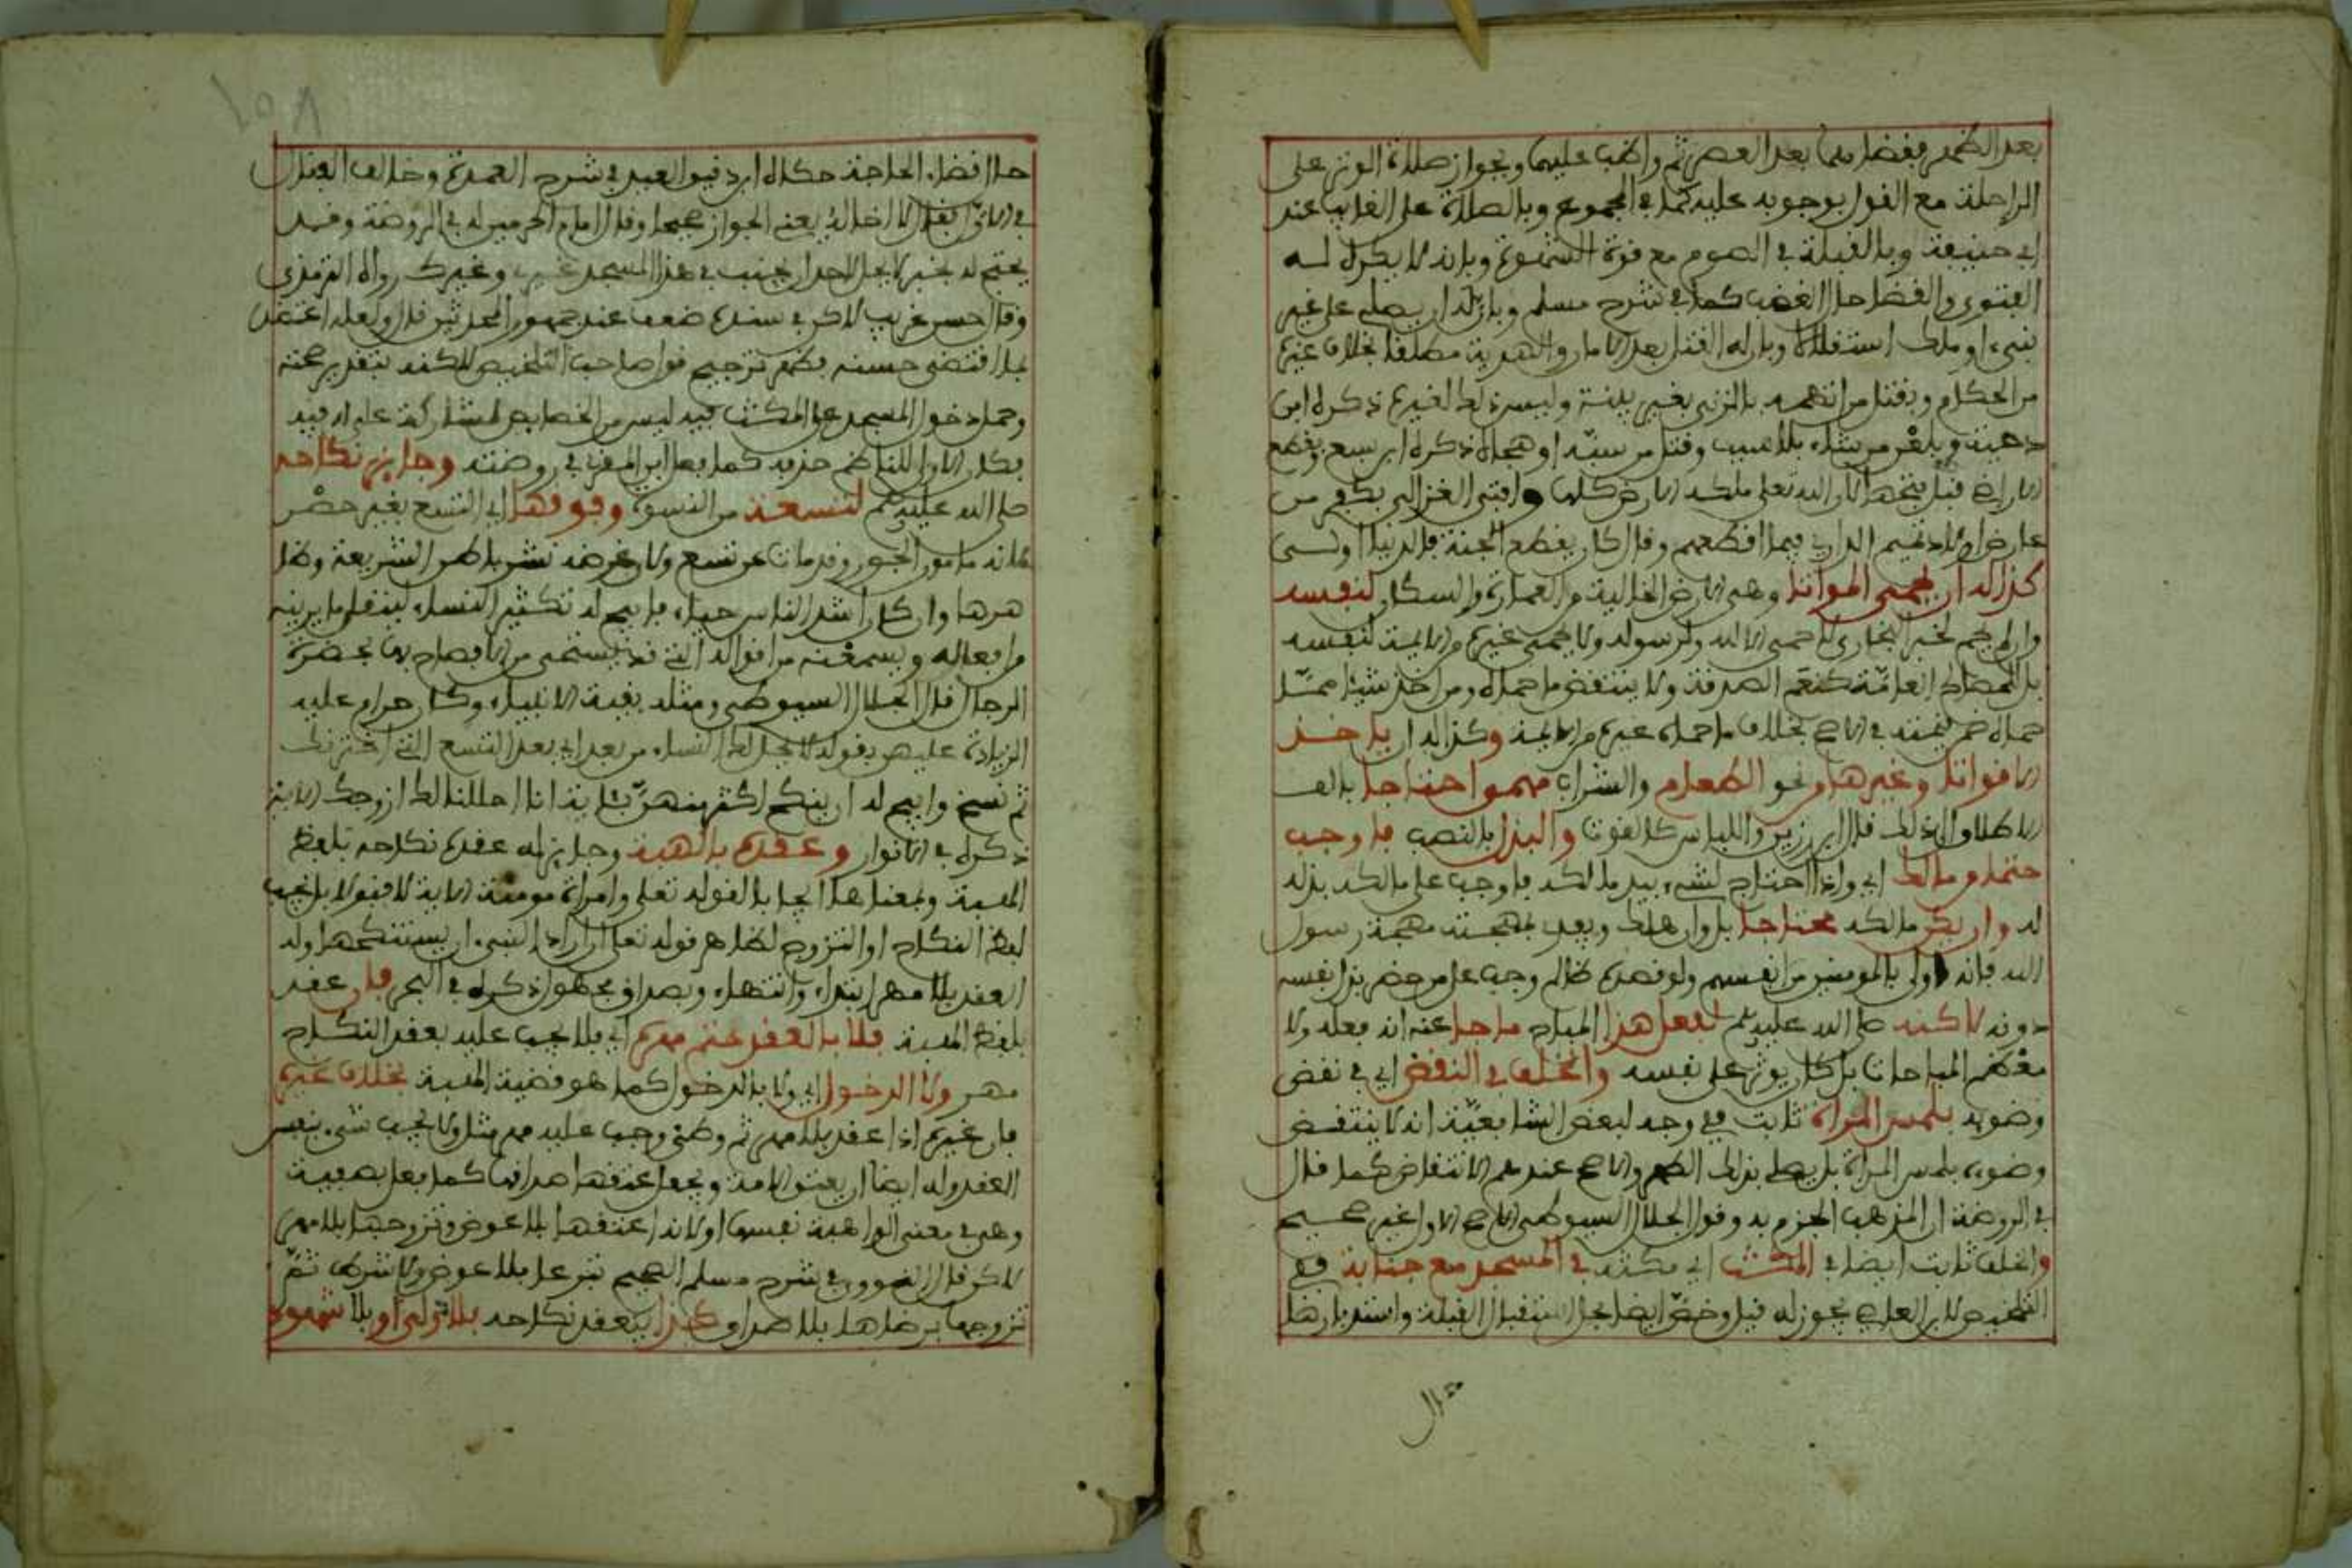 بعد الظهر فقضاهما بعد العصر ثم واظب عليهما وبجواز صلاة الوتر على
الراحلة مع القول بوجوبه عليه كما في المجموع وبالصلاة على الغايب عند
ابي حنيفة وبالقبلة في الصوم مع قوة الشهوة وبانه لا يكره له
الفتوى والقضا حال الغضب كما في شرح مسلم وبان له ان يصلي على غير
نبيء او ملك استقلالا وبان له القتل بعد الامان والتعرية مطلقا بخلاف غيره
من الحكام ويقتل من اتهمه بالزنى بغير بينة وليس ذلك لغيره ذكره ابن
دحية ويلعن من شاء بلا سبب وقتل من سبه او هجاه ذكره ابن سبع ويقطع
الاراضي قبل فتحها لان الله تعلى ملكه الارض كلها وافتى الغزالي بكفر من
عارض اولاد تميم الداري فيما اقطعهم وقال كان يقطع الجنة فالدنيا اولى
كذا له ان يحمي المواتا وهي الارض الخالية من العمارة والسكان لنفسه
وان لم يقع لخبر البخاري لا حمى الا لله ولرسوله ولا يحمي غيره من الايمة لنفسه
بل للمصالح العامة كنعم الصدقة ولا ينتقض ما حماه ومن اخذ شيئا مما
حماه ضمن قيمته في الاصح بخلاف ما حماه غيره من الايمة وكذا له ان ياخذ
الاقواتا وغيرها ونحو الطعام والشراب مهما احتاجا بالف
الاطلاق الى ذلك قال ابن رزين واللباس كالقوت والبذل بالنصب فاوجب
حتما ومالك اي واذا احتاج لشيء بيد مالكه فاوجب على مالكه بذله
له وان يكن مالكه محتاجا بل وان هلك ويفدي بمهجته مهجة رسول
الله فانه اولى بالمومنين من انفسهم ولو قصده ظالم وجب على من حضر بذل نفسه
دونه لاكنه صلى الله عليه وسلم لفعل هذا المباح ما جا عنه انه فعله ولا
معظم المباحات بل كان يوثر على نفسه والخلف في النقض اي في نقض
وضوءه بلمس المراة ثابت ففي وجه لبعض الشافعية انه لا ينتقض
وضوءه بلمس المراة بل يصلي بذلك الطهر والاصح عندهم الانتقاض كما قال
في الروضة ان المذهب الجزم به وقول الجلال السيوطي الاصح الاول غير صحيح
والخلف ثابت ايضا في المكث اي مكثه في المسجد مع جنابة ففي
التلخيص لابن القاص يجوز له قيل وخص ايضا بحل استقبال القبلة واستدبارها
حال قضاء الحاجة حكاه ابن دقيق العيد في شرح العمدة وخالف القفال
في الاول فقال لا اخاله يعني الجواز صحيحا وقال امام الحرمين له في الروضة وقد
يحتج له بخبر لا يحل لاحد ان يجنب في هذا المسجد غيري وغيرك رواه الترمذي
وقال حسن غريب لاكن في سنده ضعف عند جمهور المحدثين قال ولعله اعتضد
بما اقتضى حسنه فظهر ترجيح قول صاحب التلخيص لاكنه بتقدير صحته
وحمل دخول المسجد على المكث فيه ليس من الخصايص لمشاركة علي له فيه
فكان الاولى للناظم حذفه كما فعل ابن المقري في روضته وجايز نكاحه
صلى الله عليه وسلم لتسعة من النسوة وفوقها اي التسع بغير حصر
لانه مامون الجور وقد مات عن تسع ولان غرضه نشر باطن الشريعة وظا
هرها وان كان اشد الناس حياء فابيح له تكثير النساء لينقلن ما يرينه
من افعاله ويسمعنه من اقواله التي قد يستحيى من الافصاح بها بحضرة
الرجال قال الجلال السيوطي ومثله بقية الانبياء وكان حرام عليه
الزيادة عليهن بقوله لا يحل لك النساء من بعد اي بعد التسع التي اخترنك
ثم نسخ وابيح له ان ينكح اكثر منهن بآية انا احللنا لك ازوجك الاية
ذكره في الانوار وعقده بالهبة وجايز له عقده نكاحه بلفظ
الهبة وبمعناها ايجابا لقوله تعلى وامراة مومنة الاية لا قبولا بل يجب
لفظ النكاح او التزوج لظاهر قوله تعلى ان اراد النبيء ان يستنكحها وله
العقد بلا مهر ابتداء وانتهاء وبصداق مجهول ذكره في البحر فان عقد
بلفظ الهبة فلا بالعقد حتم مهره اي فلا يجب عليه بعقد النكاح
مهر ولا الدخول اي ولا بالدخول كما هو قضية الهبة بخلاف غيره
فان غيره اذا عقد بلا مهر ثم وطئ وجب عليه مهر مثل ولا يجب شيء بنفس
العقد وله ايضا ان يعتق الامة ويجعل عتقها صداقها كما فعل بصفية
وهي في معنى الواهبة نفسها او لانه اعتقها بلا عوض وتزوجها بلا مهر
لاكن قال النووي في شرح مسلم الصحيح تبرعا بلا عوض ولا شرط ثم
تزوجها برضاها بلا صداق كذا بعقد نكاحه بلا ولي او بلا شهود